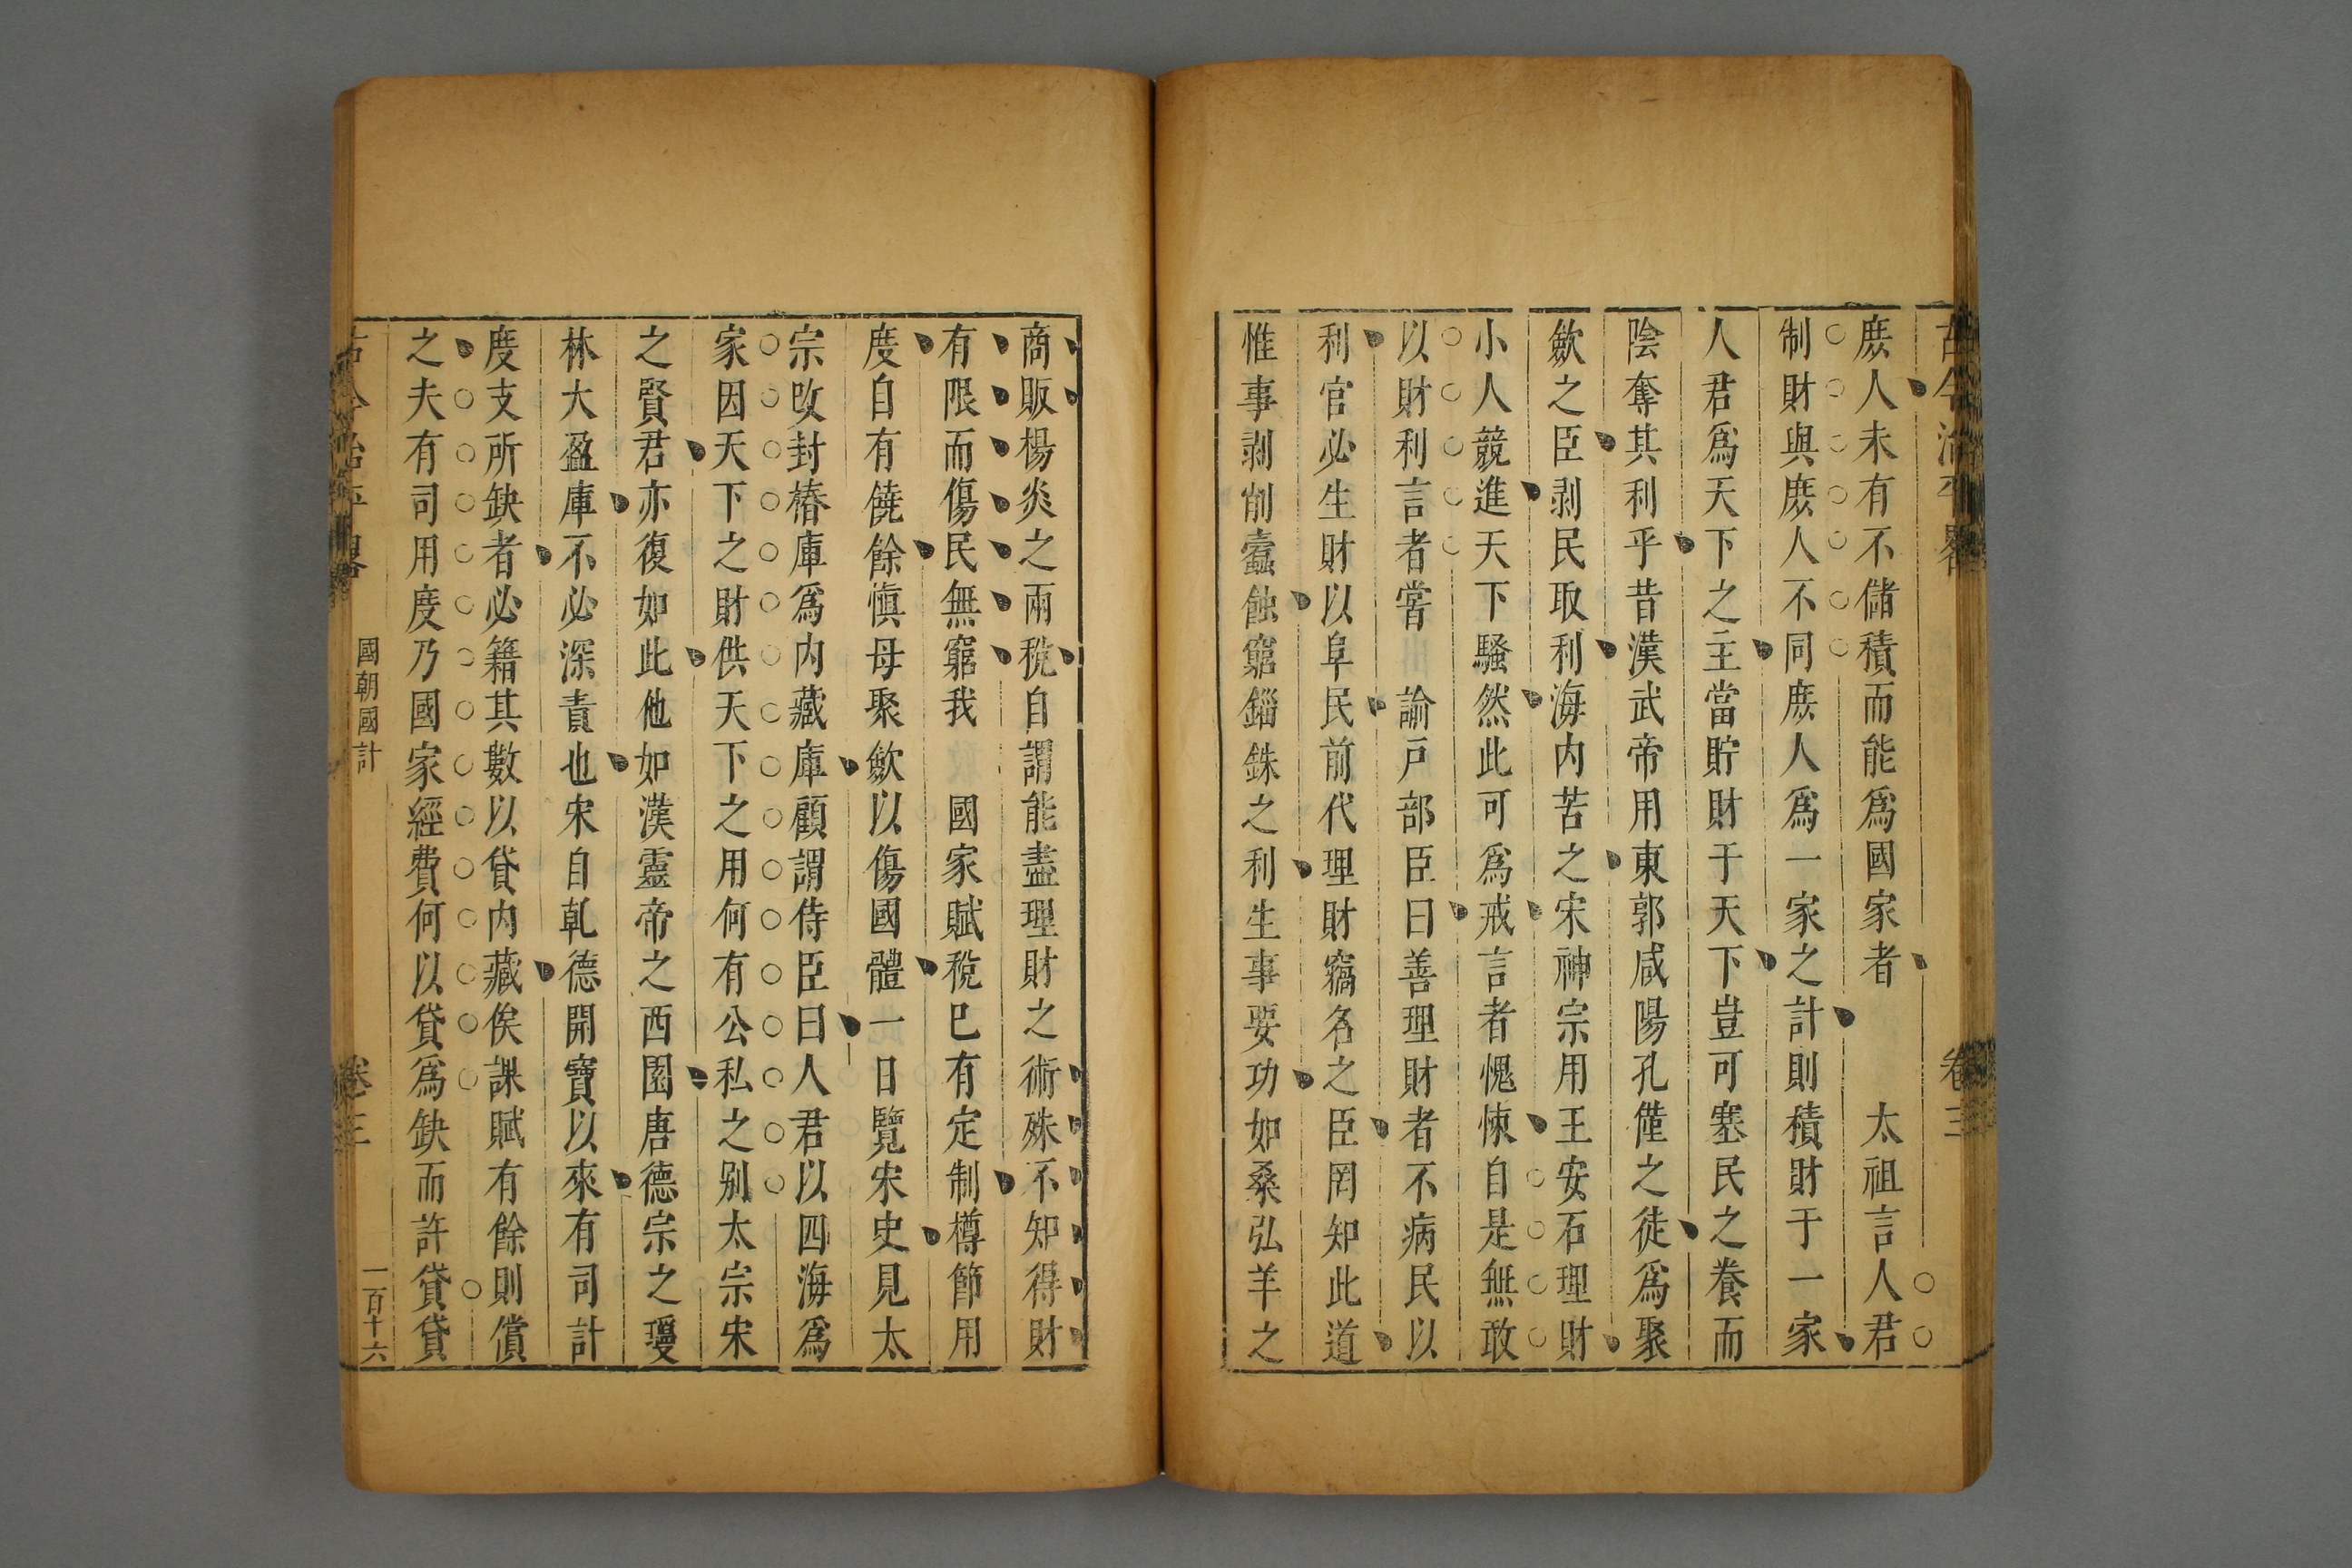 古今治平畧 卷三
庶人未有不儲積而能爲國家者 太祖言人君
制財與庶人不同庶人爲一家之計則積財于一家
人君爲天下之主當貯財于天下豈可塞民之養而
陰奪其利乎昔漢武帝用東郭咸陽孔僅之徒爲聚
歛之臣剥民取利海内苦之宋神宗用王安石理財
小人競進天下騷然此可爲戒言者愧悚自是無敢
以財利言者嘗 諭戸部臣曰善理財者不病民以
利官必生財以阜民前代理財竊名之臣罔知此道
惟事剥削蠹蝕窮錙銖之利生事要功如桑弘羊之
商販楊炎之兩稅自謂能盡理財之術殊不知得財
有限而傷民無窮我 國家賦稅已有定制樽節用
度自有饒餘慎毋聚歛以傷國體一日覽宋史見太
宗改封樁庫爲内藏庫顧謂侍臣曰人君以四海爲
家因天下之財供天下之用何有公私之别太宗宋
之賢君亦復如此他如漢靈帝之西園唐德宗之瓊
林大盈庫不必深責也宋自乹德開寶以來有司計
度支所缺者必籍其數以貸内藏俟課賦有餘則償
之夫有司用度乃國家經費何以貸爲缺而許貸貸
古今治平畧 國朝國計 卷三 一百十六